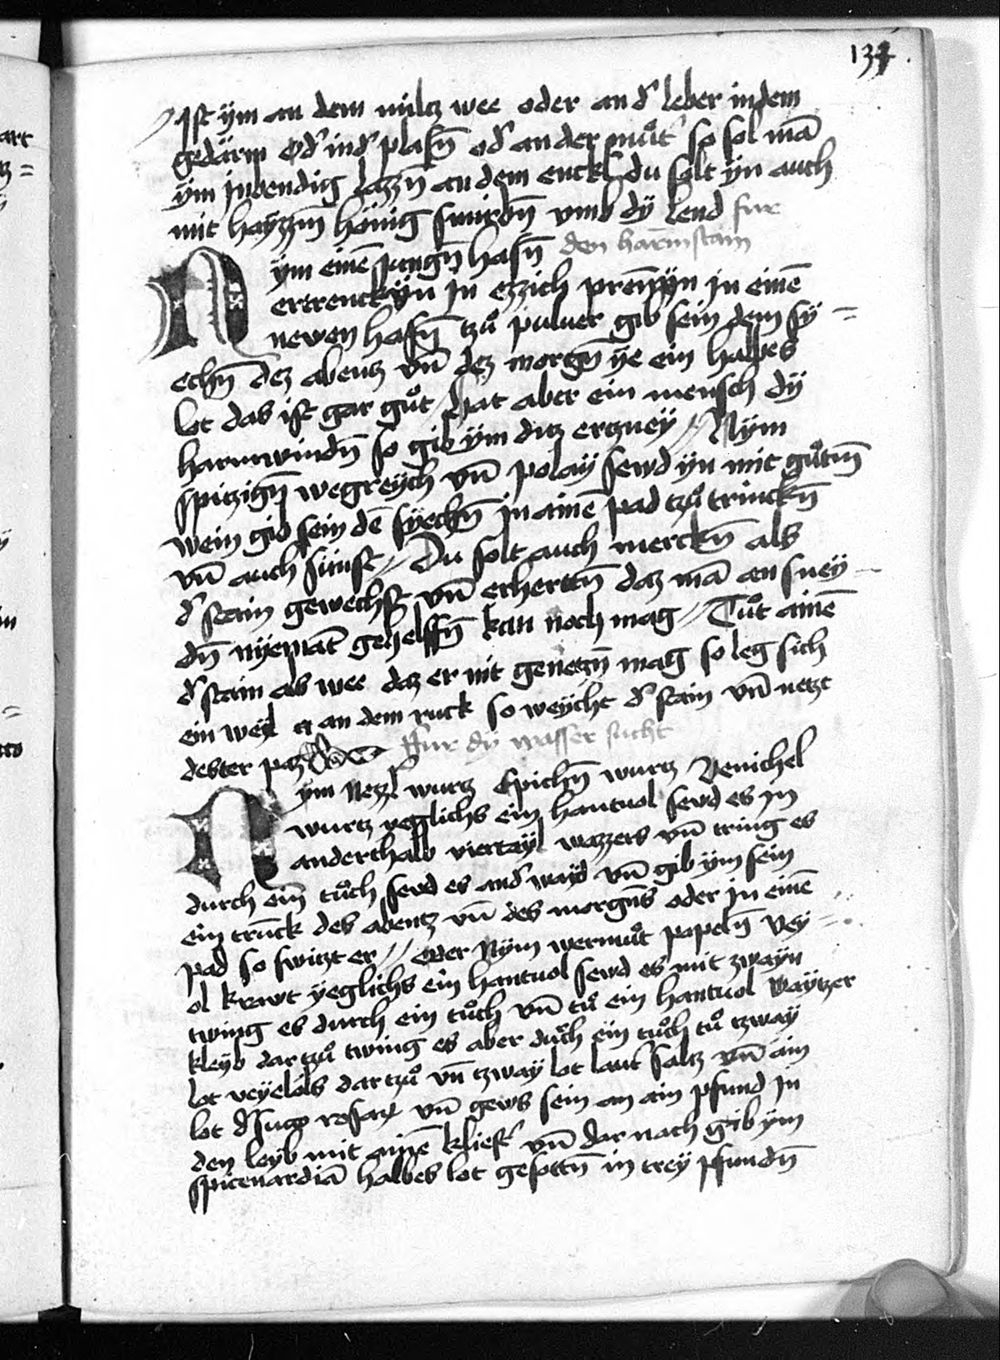 134.
Ist ym an dem miltz wee oder an d' leber in dem
gedärm od' in d' plasn̄ od' an der muͦt' so sol mā
ym inbendig lazzn̄ an dem enckl du solt yn auch
mit hayzzm̄ hönig smirbn̄ vmb dÿ lend fur
den harmstain
Nym einē jungn̄ hasn̄
ertrenck yn in ezzich prenn yn in einē
newen hafn̄ tzuͦ puluer gib sein dem sy=
echn̄ dez abentz vn̄ dez morgn̄ ye ein halbes
lot das ist gar guͦt / hat aber ein mensch dÿ
harmwindn̄ so gib ym ditz ertzney // Nym
spitzign̄ wegreych vn̄ polay sewd yn mit guͦtm̄
wein gib sein dē syechn̄ in ainē pad tzuͦ trinckn̄
vn̄ auch sünst // Du solt auch merckn̄ als
d' stain gewechst vn̄ erherttn̄ daz mā an sney=
dn̄ nyemāt gehelffn̄ kan noch mag // Tuͦt ainē
d' stain als wee daz er nit genetzn̄ mag so leg sich
ein weyl an dem ruck so weycht d' stain vn̄ netzt
dester paz Fur dÿ wasser sucht
Nym Nezzl wurtz Epichn̄ wurtz Venichel
wurtz yeglichs ein hantuol sewd es in
anderthalb viertayl wazzers vn̄ twing es
durch ein tuͦch sewd es and' wayd vn̄ gib ym sein
ein trunck des abentz vn̄ des morgn̄s oder in einē
pad so switzt er // Oder Nym wermuͦt papeln̄ vey=
ol krawt yeglichs ein hantuol sewd es mit zwayn
twing es durch ein tuͦch vn̄ tuͦ ein hantuol waytzer
kleyb dar tzuͦ twing es aber durch ein tuͦch tuͦ tzway
lot veyelöls dar tzuͦ vn̄ tzway lot laut' saltz vn̄ ain
lot d' sucg rosarꝝ vn̄ gews sein an ain pfund in
den leyb mit ainē klist' vn̄ dar nach gib ym
spicenardiā halbes lot gesottn̄ in trey pfundn̄